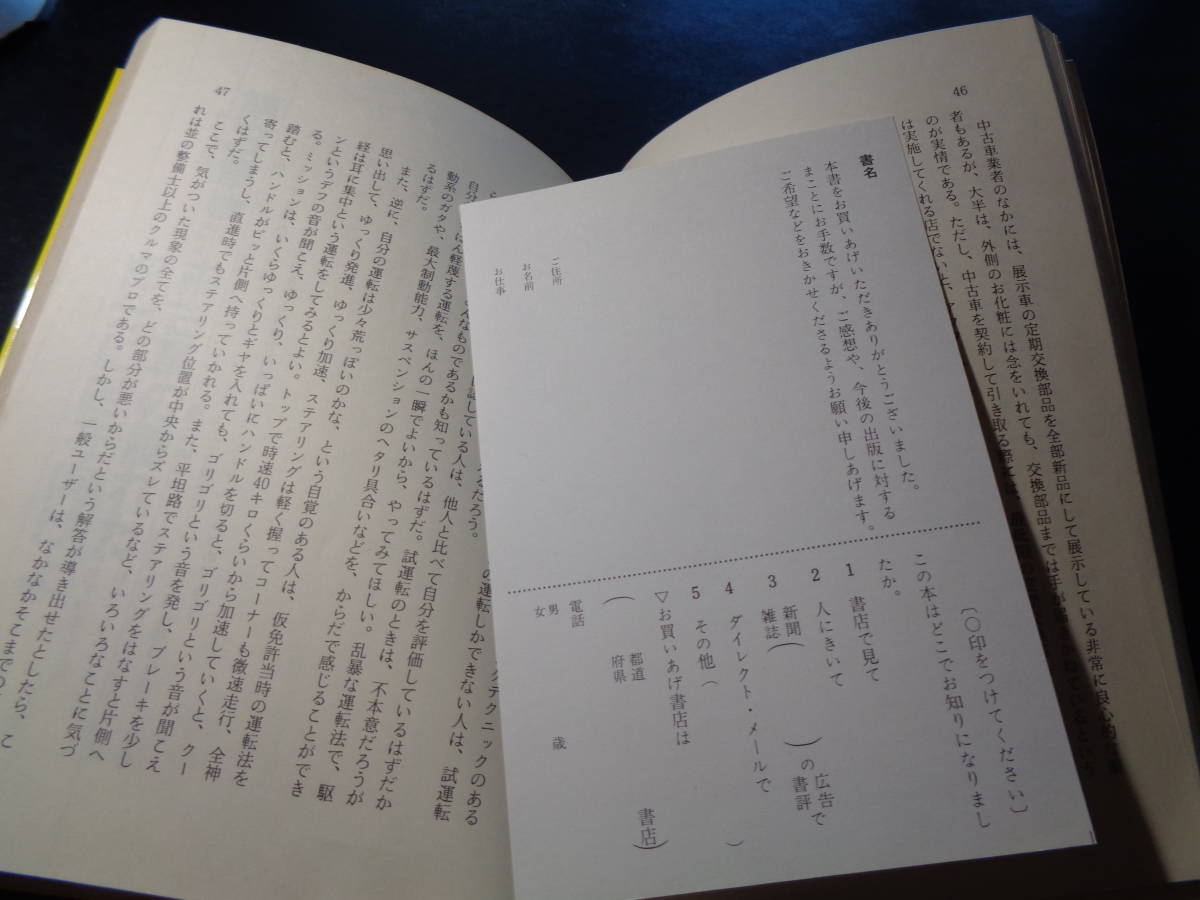 46
中古車業者のなかには、展示車の定期交換部品を全部新品にして展示している非常に良心的な業
者もあるが、大半は、外側のお化粧には念をいれても、交換部品までは手が
のが実情である。ただし、中古車を契約して引き取る際に
は実施してくれる店でないと、
書名
本書をお買いあげいただきありがとうございました。
まことにお手数ですが、ご感想や、今後の出版に対する
ご希望などをおきかせくださるようお願い申しあげます。
ご住所
お名前
お仕事
〔○印をつけてください〕
この本はどこでお知りになりまし
たか。
1 書店で見て
2 人にきいて
3 新聞 雑誌( )の広告で 書評
4 ダイレクト・メールで
5 その他( )
▽お買いあげ書店は
( 都道 府県 書店)
電話
男 女 歳
47
クテニックのある
の運転しかできない人は、試運転
るだろう。
認している人は、他人と比べて自分を評価しているはずだか
んなものであるかも知っているはずだ。試運転のときは、不本意だろうが
はん軽度する運転を、ほんの一瞬でよいから、やってみてほしい。乱暴な運転法で、駆
動系のガタや、最大制動能力、サスペンションのヘタリ具合いなどを、からだで感じることができ
るはずだ。
また、逆に、自分の運転は少々荒っぽいのかな、という自覚のある人は、仮免許当時の運転法を
思い出して、ゆっくり発進、ゆっくり加速、ステアリングは軽く握ってコーナーも微速走行、全神
経は耳に集中という運転をしてみるとよい。トップで時速40キロくらいから加速していくと、クー
ンというデフの音が聞こえ、ゆっくり、いっぱいにハンドルを切ると、ゴリゴリという音が聞こえ
る。ミッションは、いくらゆっくりとギヤを入れても、ゴリゴリという音を発し、ブレーキを少し
踏むと、ハンドルがピッと片側へ持っていかれる。また、平坦路でステアリングをはなすと片側へ
寄ってしまうし、直進時でもステアリング位置が中央からズレているなど、いろいろなことに気づ
くはずだ。
ここで、気がついた現象の全てを、どの部分が悪いからだという解答が導き出せたとしたら、こ
れは並の整備士以上のクルマのプロである。しかし、一般ユーザーは、なかなかそこまでの